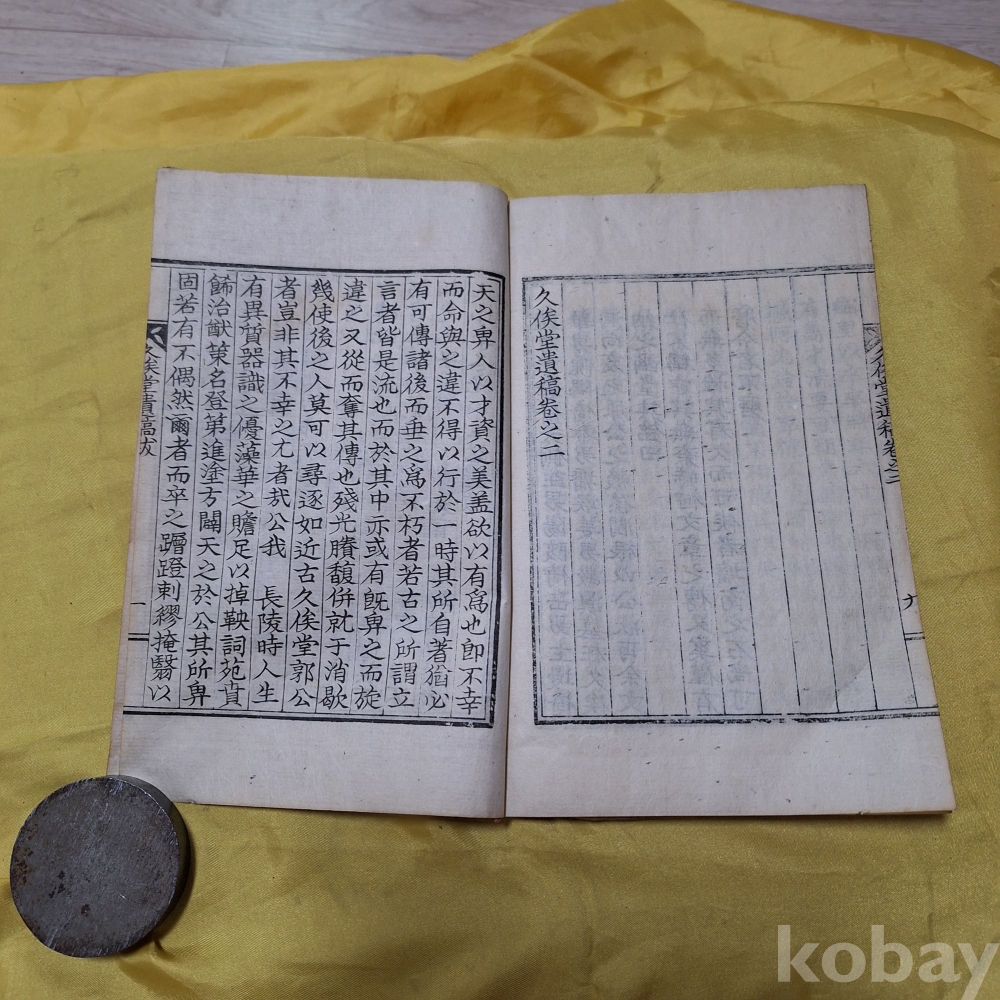 久俟堂遺稿卷之二
久俟堂遺稿卷之二
九
天之畀人以才資之美盖欲以有爲也卽不幸
而命與之違不得以行於一時其所自著猶必
有可傳諸後而垂之爲不朽者若古之所謂立
言者皆是流也而於其中亦或有旣畀之而旋
違之又從而奪其傳也殘光賸馥倂就于消歇
幾使後之人莫可以尋逐如近古久俟堂郭公
者豈非其不幸之尤者㢤公我 長陵時人生
有異質器識之優藻華之贍足以掉鞅詞苑賁
餙治猷策名登第進塗方闢天之於公其所畀
固若有不偶然爾者而卒之蹭蹬剌繆掩翳以
久俟堂遺稿跋
一
kobay